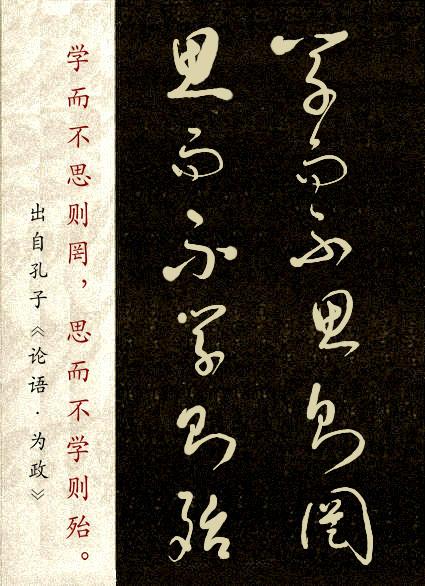 学而不思则罔
思而不学则殆
学而不思则罔，思而不学则殆。
出自孔子《论语·为政》